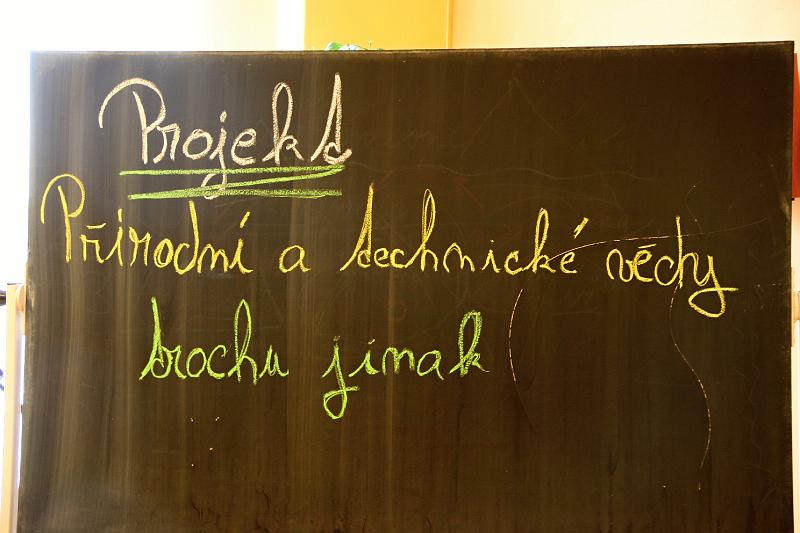 Projekt
Přírodní a technické vědy
trochu jinak